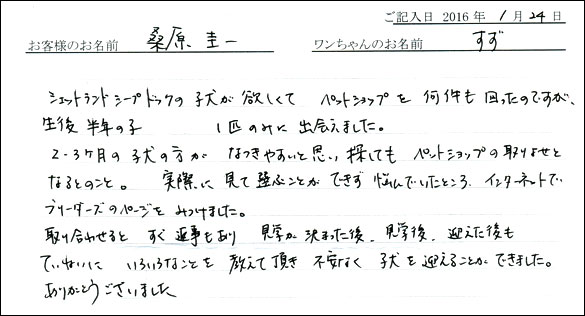 ご記入日 2016 年 1 月 24 日
お客様のお名前 桑原 圭一 ワンちゃんのお名前 すず
シェットランドシープドックの子犬が欲しくて ペットショップを何件も回ったのですが、
生後半年の子 1匹のみに出会えました。
2-3ヶ月の子犬の方が なつきやすいと思い 探しても ペットショップの取りよせと
なるとのこと。 実際に見て選ぶことができず 悩んでいたところ、インターネットで
ブリーダーズのページをみつけました。
取り合わせると すぐ返事もあり 見学が決まった後、見学後、迎えた後も
ていねいに いろいろなことを教えて頂き 不安なく 子犬を迎えることができました。
ありがとうございました